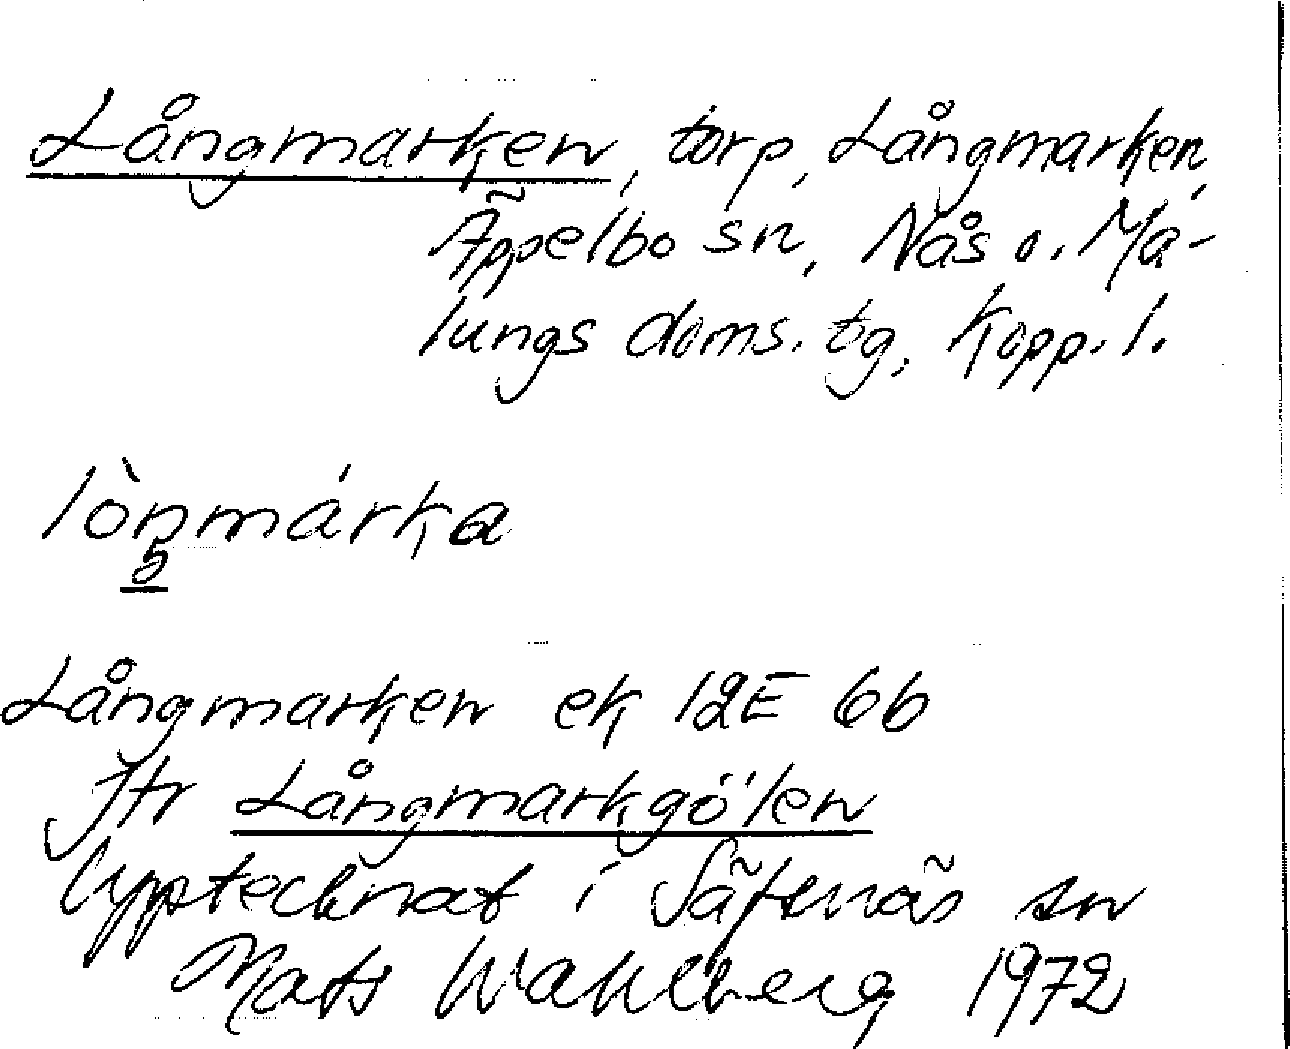 Långmarken, torp, Långmarken,
Äppelbo sn, Nås o. Ma-
lungs doms. tg, Kopp. l.
lòŋmárka
Långmarken ek 12E 6b
Jfr Långmarkgölen
Upptecknat i Säfsnäs sn
Mats Wahlberg 1972